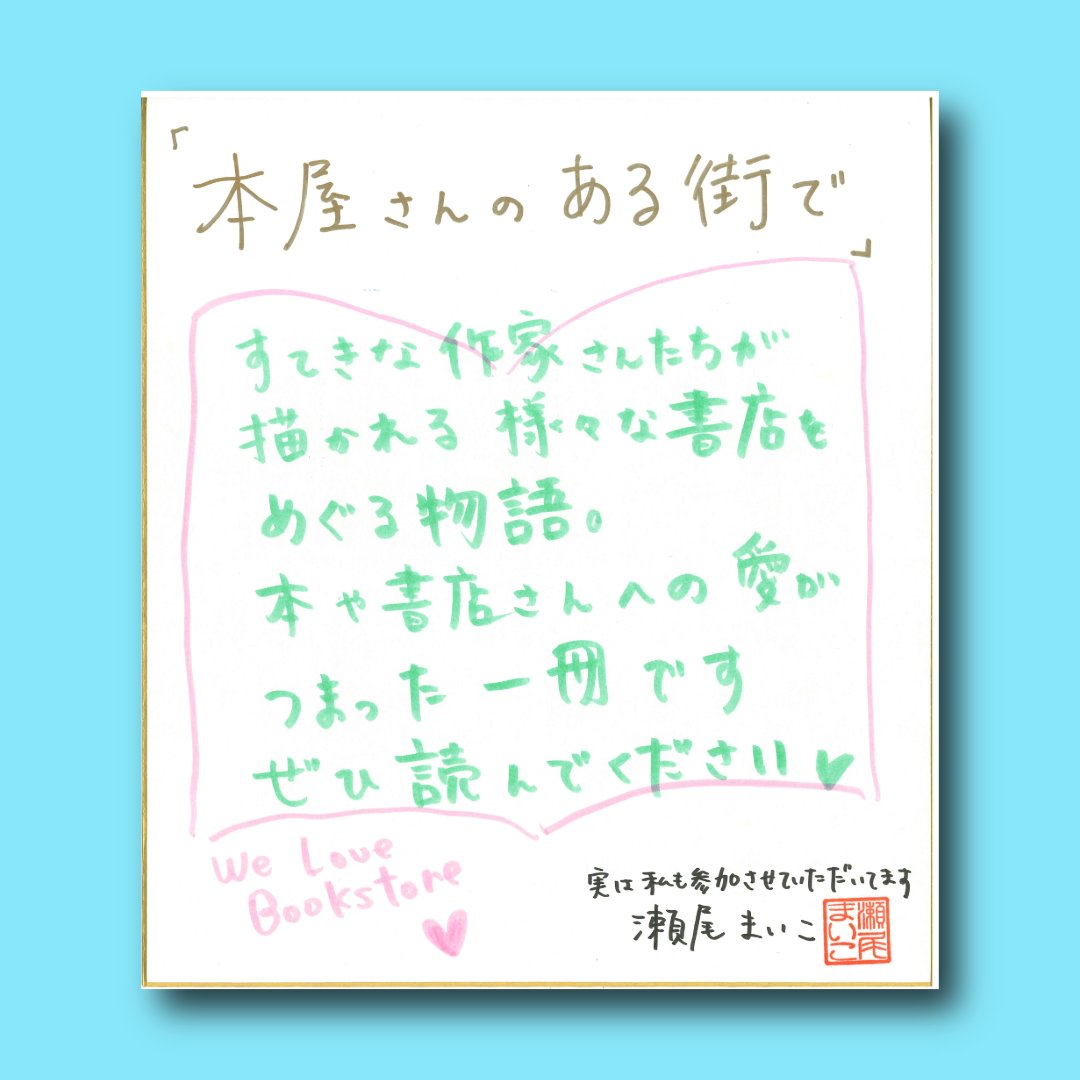 「本屋さんのある街で」
すてきな作家さんたちが
描かれる様々な書店を
めぐる物語。
本や書店さんへの愛が
つまった一冊です
ぜひ読んでください♥
We Love
Bookstore
♥
実は私も参加させていただいてます
瀬尾まいこ
瀬尾
まいこ